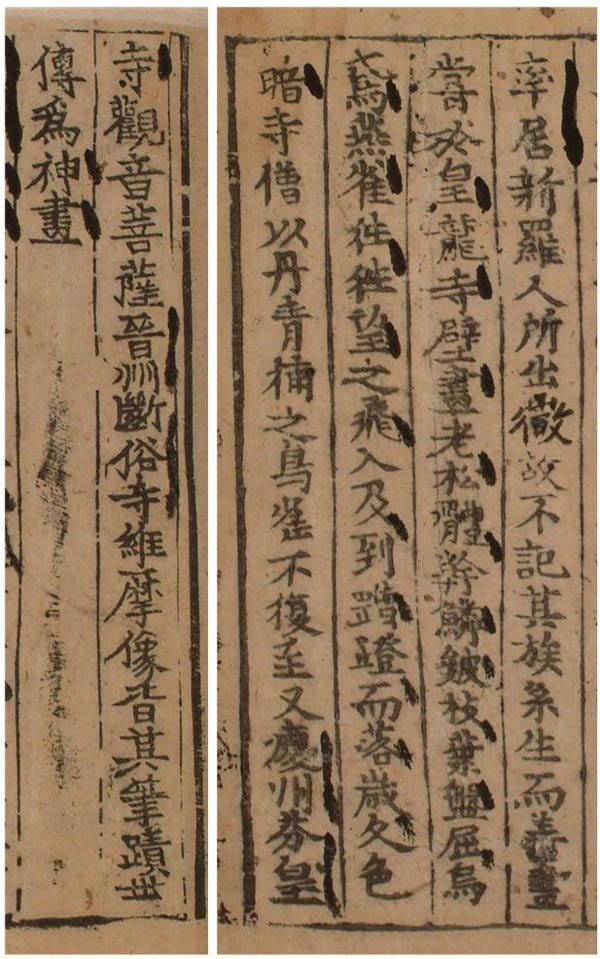 率居新羅人所出微故不記其族系生而善畫
嘗於皇龍寺壁畫老松體幹鱗皴枝葉盤屈烏
鳶燕雀徃徃望之飛入及到蹭蹬而落歲久色
暗寺僧以丹青補之鳥雀不復至又慶州芬皇
寺觀音菩薩晉州斷俗寺維摩像皆其筆蹟世
傳爲神畫